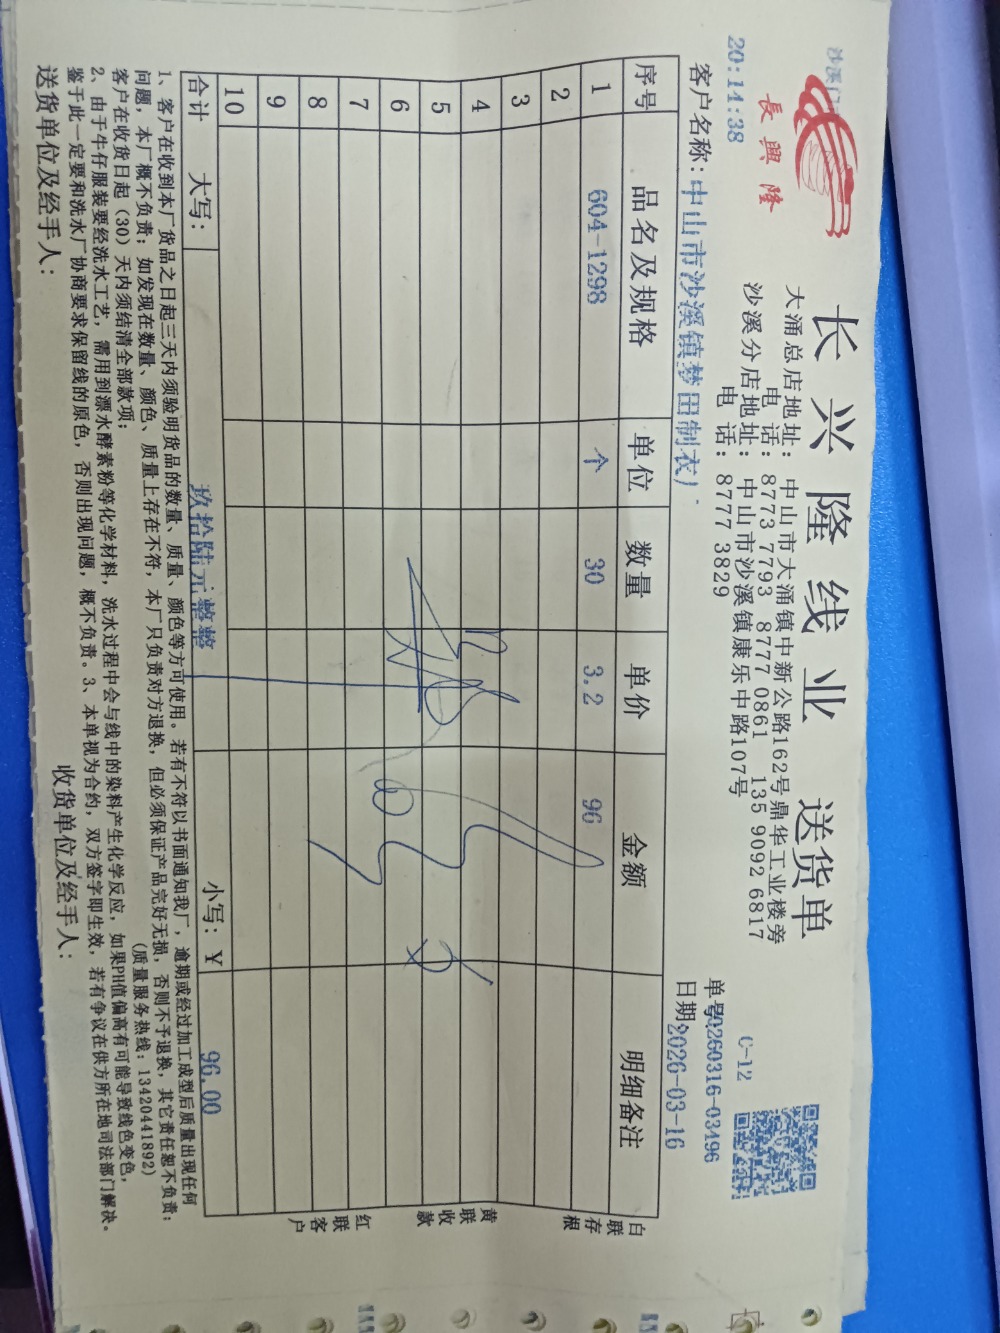 沙溪门
長興隆
20:14:38
长兴隆线业 送货单
大涌总店地址：中山市大涌镇中新公路162号鼎华工业楼旁
电 话：8773 7793 8777 0861 135 9092 6817
沙溪分店地址：中山市沙溪镇康乐中路107号
电 话：8777 3829
C-12
单号20260316-03496
日期2026-03-16
客户名称：中山市沙溪镇梦田制衣）
序号 品名及规格 单位 数量 单价 金额 明细备注
1 604-1298 个 30 3.2 96
2
3
4
5
6
7
8
9
10
合计 大写： 玖拾陆元整整 小写：￥ 96.00
白联存根
黄联收款
红联客户
1、客户在收到本厂货品之日起三天内须验明货品的数量、质量、颜色等方可使用。若有不符以书面通知我厂，逾期或经过加工成型后质量出现任何
问题，本厂概不负责；如发现在数量、颜色、质量上存在不符，本厂只负责对方退换，但必须保证产品完好无损，否则不予退换，其它责任恕不负责；
客户在收货日起（30）天内须结清全部款项； （质量服务热线：13420441892）
2、由于牛仔服装要经洗水工艺，需用到漂水酵素粉等化学材料，洗水过程中会与线中的染料产生化学反应，如果PH值偏高有可能导致线色变色，
鉴于此一定要和洗水厂协商要求保留线的原色，否则出现问题，概不负责。3、本单视为合约，双方签字即生效，若有争议在供方所在地司法部门解决。
送货单位及经手人： 收货单位及经手人：